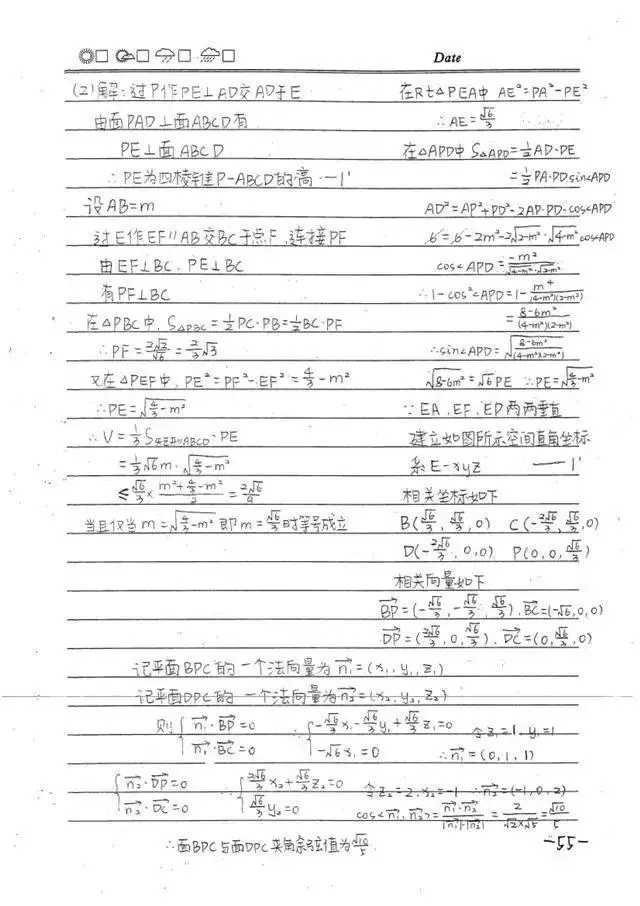 Date
(2)解:过P作PE⊥AD交AD于E
由面PAD⊥面ABCD有
PE⊥面ABCD
∴PE为四棱锥P-ABCD的高 —1'
设AB=m
过E作EF∥AB交BC于点F,连接PF
由EF⊥BC,PE⊥BC
有PF⊥BC
在△PBC中,S△PBC=½PC·PB=½BC·PF
∴PF=2√2/√6=2/3√3
又在△PEF中,PE²=PF²-EF²=4/3-m²
∴PE=√(4/3-m²)
∴V=1/3 S矩形ABCD·PE
=1/3√6m·√(4/3-m²)
≤√6/3×(m²+4/3-m²)/2=2√6/9
当且仅当m=√(4/3-m²)即m=√6/3时等号成立
在Rt△PEA中 AE²=PA²-PE²
∴AE=√6/3
在△APD中S△APD=½AD·PE
=½PA·PDsin∠APD
AD²=AP²+PD²-2AP·PD·cos∠APD
6=6-2m²-2√(2-m²)·√(4-m²)cos∠APD
cos∠APD=-m²/(√(4-m²)·√(2-m²))
∴1-cos²∠APD=1-m⁴/((4-m²)(2-m²))
=(8-6m²)/((4-m²)(2-m²))
∴sin∠APD=√((8-6m²)/((4-m²)(2-m²)))
√(8-6m²)=√6PE ∴PE=√(4/3-m²)
∵EA,EF,ED两两垂直
建立如图所示空间直角坐标
系E-xyz —1'
相关坐标如下
B(√6/3,√6/3,0) C(-2√6/3,√6/3,0)
D(-2√6/3,0,0) P(0,0,√6/3)
相关向量如下
BP→=(-√6/3,-√6/3,√6/3),BC→=(-√6,0,0)
DP→=(2√6/3,0,√6/3),DC→=(0,√6/3,0)
记平面BPC的一个法向量为n₁→=(x₁,y₁,z₁)
记平面DPC的一个法向量为n₂→=(x₂,y₂,z₂)
则{n₁→·BP→=0 ∴{-√6/3x₁-√6/3y₁+√6/3z₁=0 令z₁=1,y₁=1
n₁→·BC→=0 -√6x₁=0 ∴n₁→=(0,1,1)
{n₂→·DP→=0 ∴{2√6/3x₂+√6/3z₂=0 令z₂=2,x₂=-1 ∴n₂→=(-1,0,2)
n₂→·DC→=0 √6/3y₂=0 cos<n₁→,n₂→>=n₁→·n₂→/|n₁→|·|n₂→|=2/(√2×√5)=√10/5
∴面BPC与面DPC夹角余弦值为√10/5
-55-